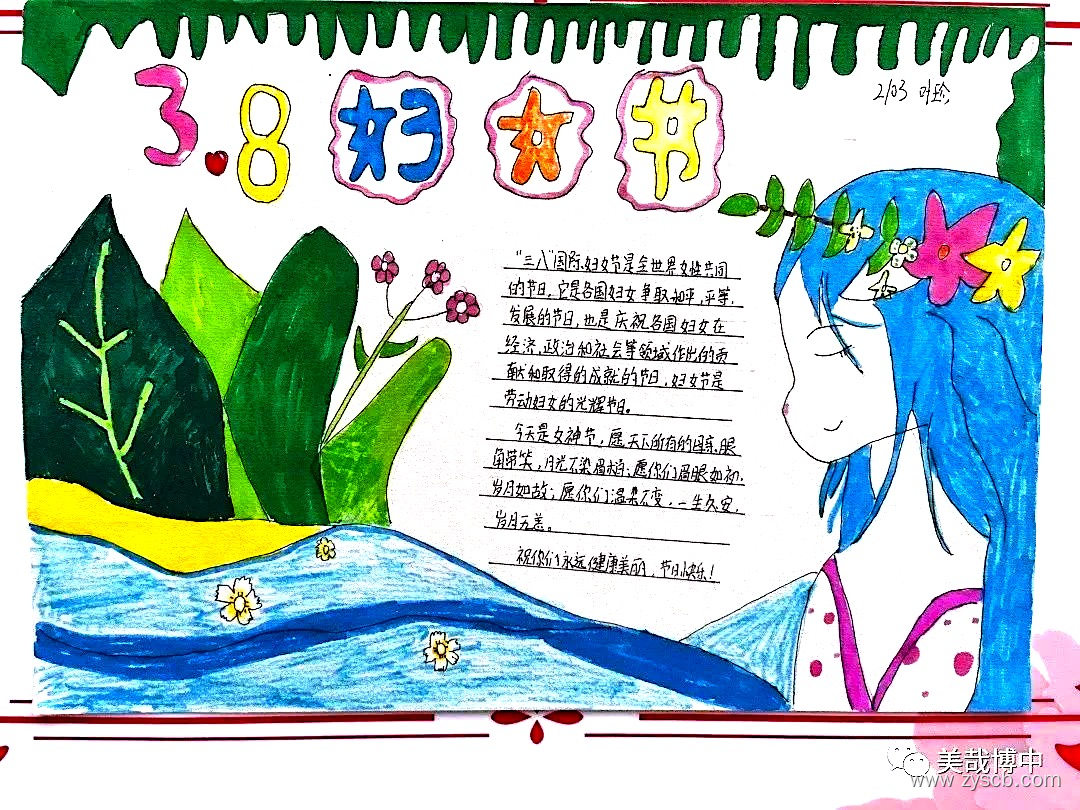 2103 叶珍
3.8 妇女节
“三八”国际妇女节是全世界女性共同
的节日，它是各国妇女争取和平、平等、
发展的节日，也是庆祝各国妇女在
经济、政治和社会等领域作出的贡
献和取得的成就的节日，妇女节是
劳动妇女的光辉节日。
今天是女神节，愿天下所有的母亲，眼
角带笑，月光不染眉梢；愿你们眉眼如初，
岁月如故；愿你们温柔不变，一生久安，
岁月无恙。
祝你们永远健康美丽，节日快乐！
美哉博中
www.zyscb.com